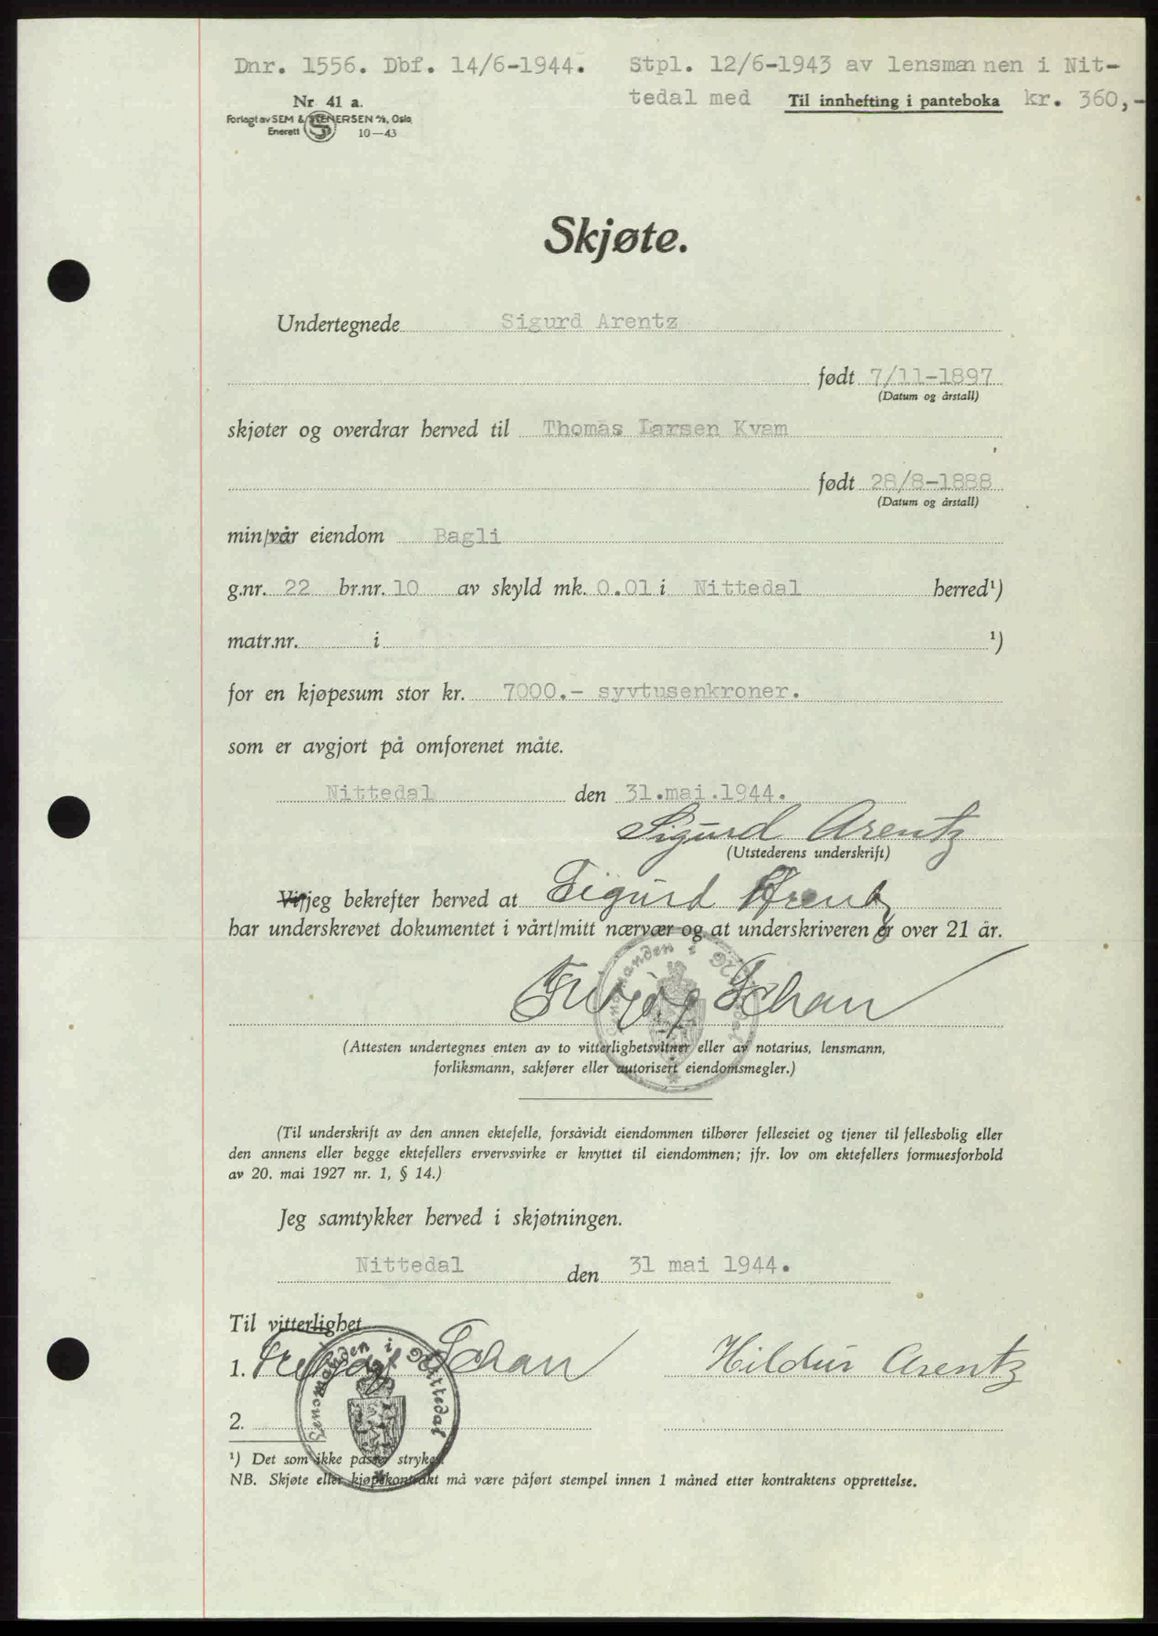 Dnr. 1556. Dbf. 14/6-1944. Stpl. 12/6-1943 av lensmannen i Nit-
tedal med Til innhefting i panteboka kr. 360,-
Nr 41 a.
Forlagt av SEM & STENERSEN A/S, Oslo
Enerett 10—43
Skjøte.
Undertegnede Sigurd Arentz
født 7/11-1897
(Datum og årstall)
skjøter og overdrar herved til Thomas Larsen Kvam
født 28/8-1888
(Datum og årstall)
min/vår eiendom Bagli
g.nr. 22 br.nr. 10 av skyld mk. 0.01 i Nittedal herred¹)
matr.nr. i ¹)
for en kjøpesum stor kr. 7000.- syvtusenkroner.
som er avgjort på omforenet måte.
Nittedal den 31.mai.1944.
Sigurd Arentz
(Utstederens underskrift)
Vi/jeg bekrefter herved at Sigurd Arentz
har underskrevet dokumentet i vårt/mitt nærvær og at underskriveren er over 21 år.
Schau
(Attesten undertegnes enten av to vitterlighetsvitner eller av notarius, lensmann,
forliksmann, sakfører eller autorisert eiendomsmegler.)
(Til underskrift av den annen ektefelle, forsåvidt eiendommen tilhører felleseiet og tjener til fellesbolig eller
den annens eller begge ektefellers ervervsvirke er knyttet til eiendommen; jfr. lov om ektefellers formuesforhold
av 20. mai 1927 nr. 1, § 14.)
Jeg samtykker herved i skjøtningen.
Nittedal den 31 mai 1944.
Til vitterlighet
1. Schau Hildur Arentz
Lensmannen i Nittedal
2.
¹) Det som ikke passer strykes.
NB. Skjøte eller kjøpekontrakt må være påført stempel innen 1 måned etter kontraktens opprettelse.